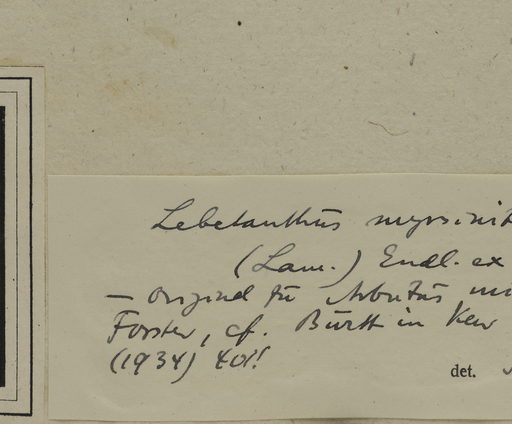 Lebetanthus myrsinit
(Lam.) Endl. ex
– Original für Arbutus
Forster, cf. Burtt in Kew
(1934) 401!
det.